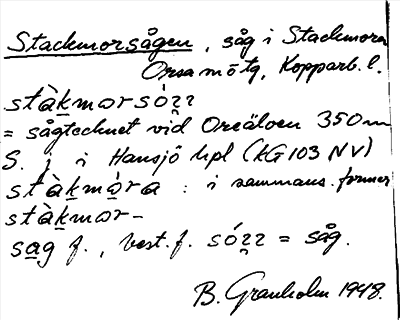 Stackmorsågen, såg i Stackmora
Orsa mōtg, Kopparb. l.
stàḵmạrsóʒʒ
= sågtecknet vid Oreälven 350 m
S. j i Hansjö hpl (KG 103 NV)
stàḵmạ̀ra : i sammans. former
stàḵmạr-
sag f., best. f. sóʒʒ = såg.
B. Granholm 1948.